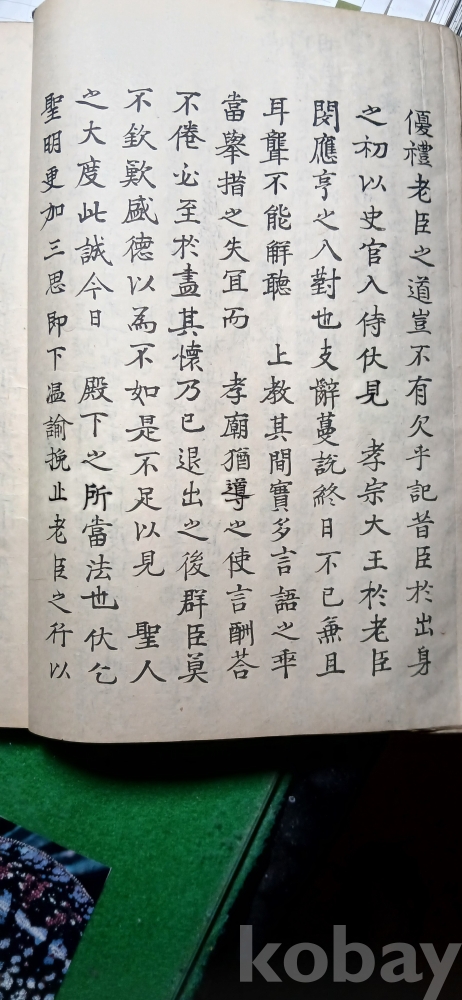 優禮老臣之道豈不有欠乎記昔臣於出身
之初以史官入侍伏見 孝宗大王於老臣
閔應亨之入對也支辭蔓說終日不已兼且
耳聾不能解聽 上教其間實多言語之乖
當擧措之失冝而 孝廟猶導之使言酬答
不倦必至於盡其懷乃已退出之後群臣莫
不欽歎盛德以為不如是不足以見 聖人
之大度此誠今日 殿下之所當法也伏乞
聖明更加三思即下温諭挽止老臣之行以
kobay